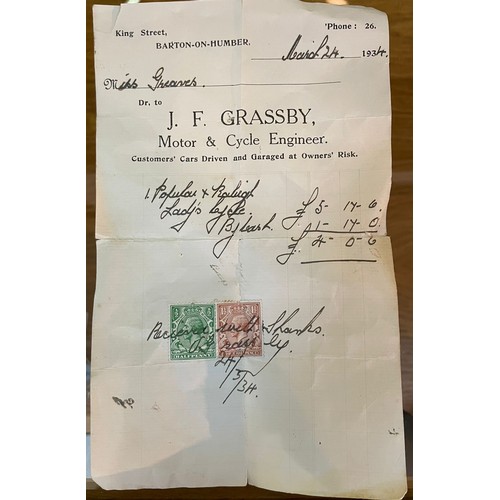 King Street,
'Phone: 26.
BARTON-ON-HUMBER,
March 24. 1934.
Miss Greaves.
Dr. to
J. F. GRASSBY,
Motor & Cycle Engineer.
Customers' Cars Driven and Garaged at Owners' Risk.
1 Popular Raleigh
Lady's Cycle £ 5-17-6
By Cash. 1-17-0
£ 4-0-6
HALFPENNY
Received with Thanks.
24/3/34.